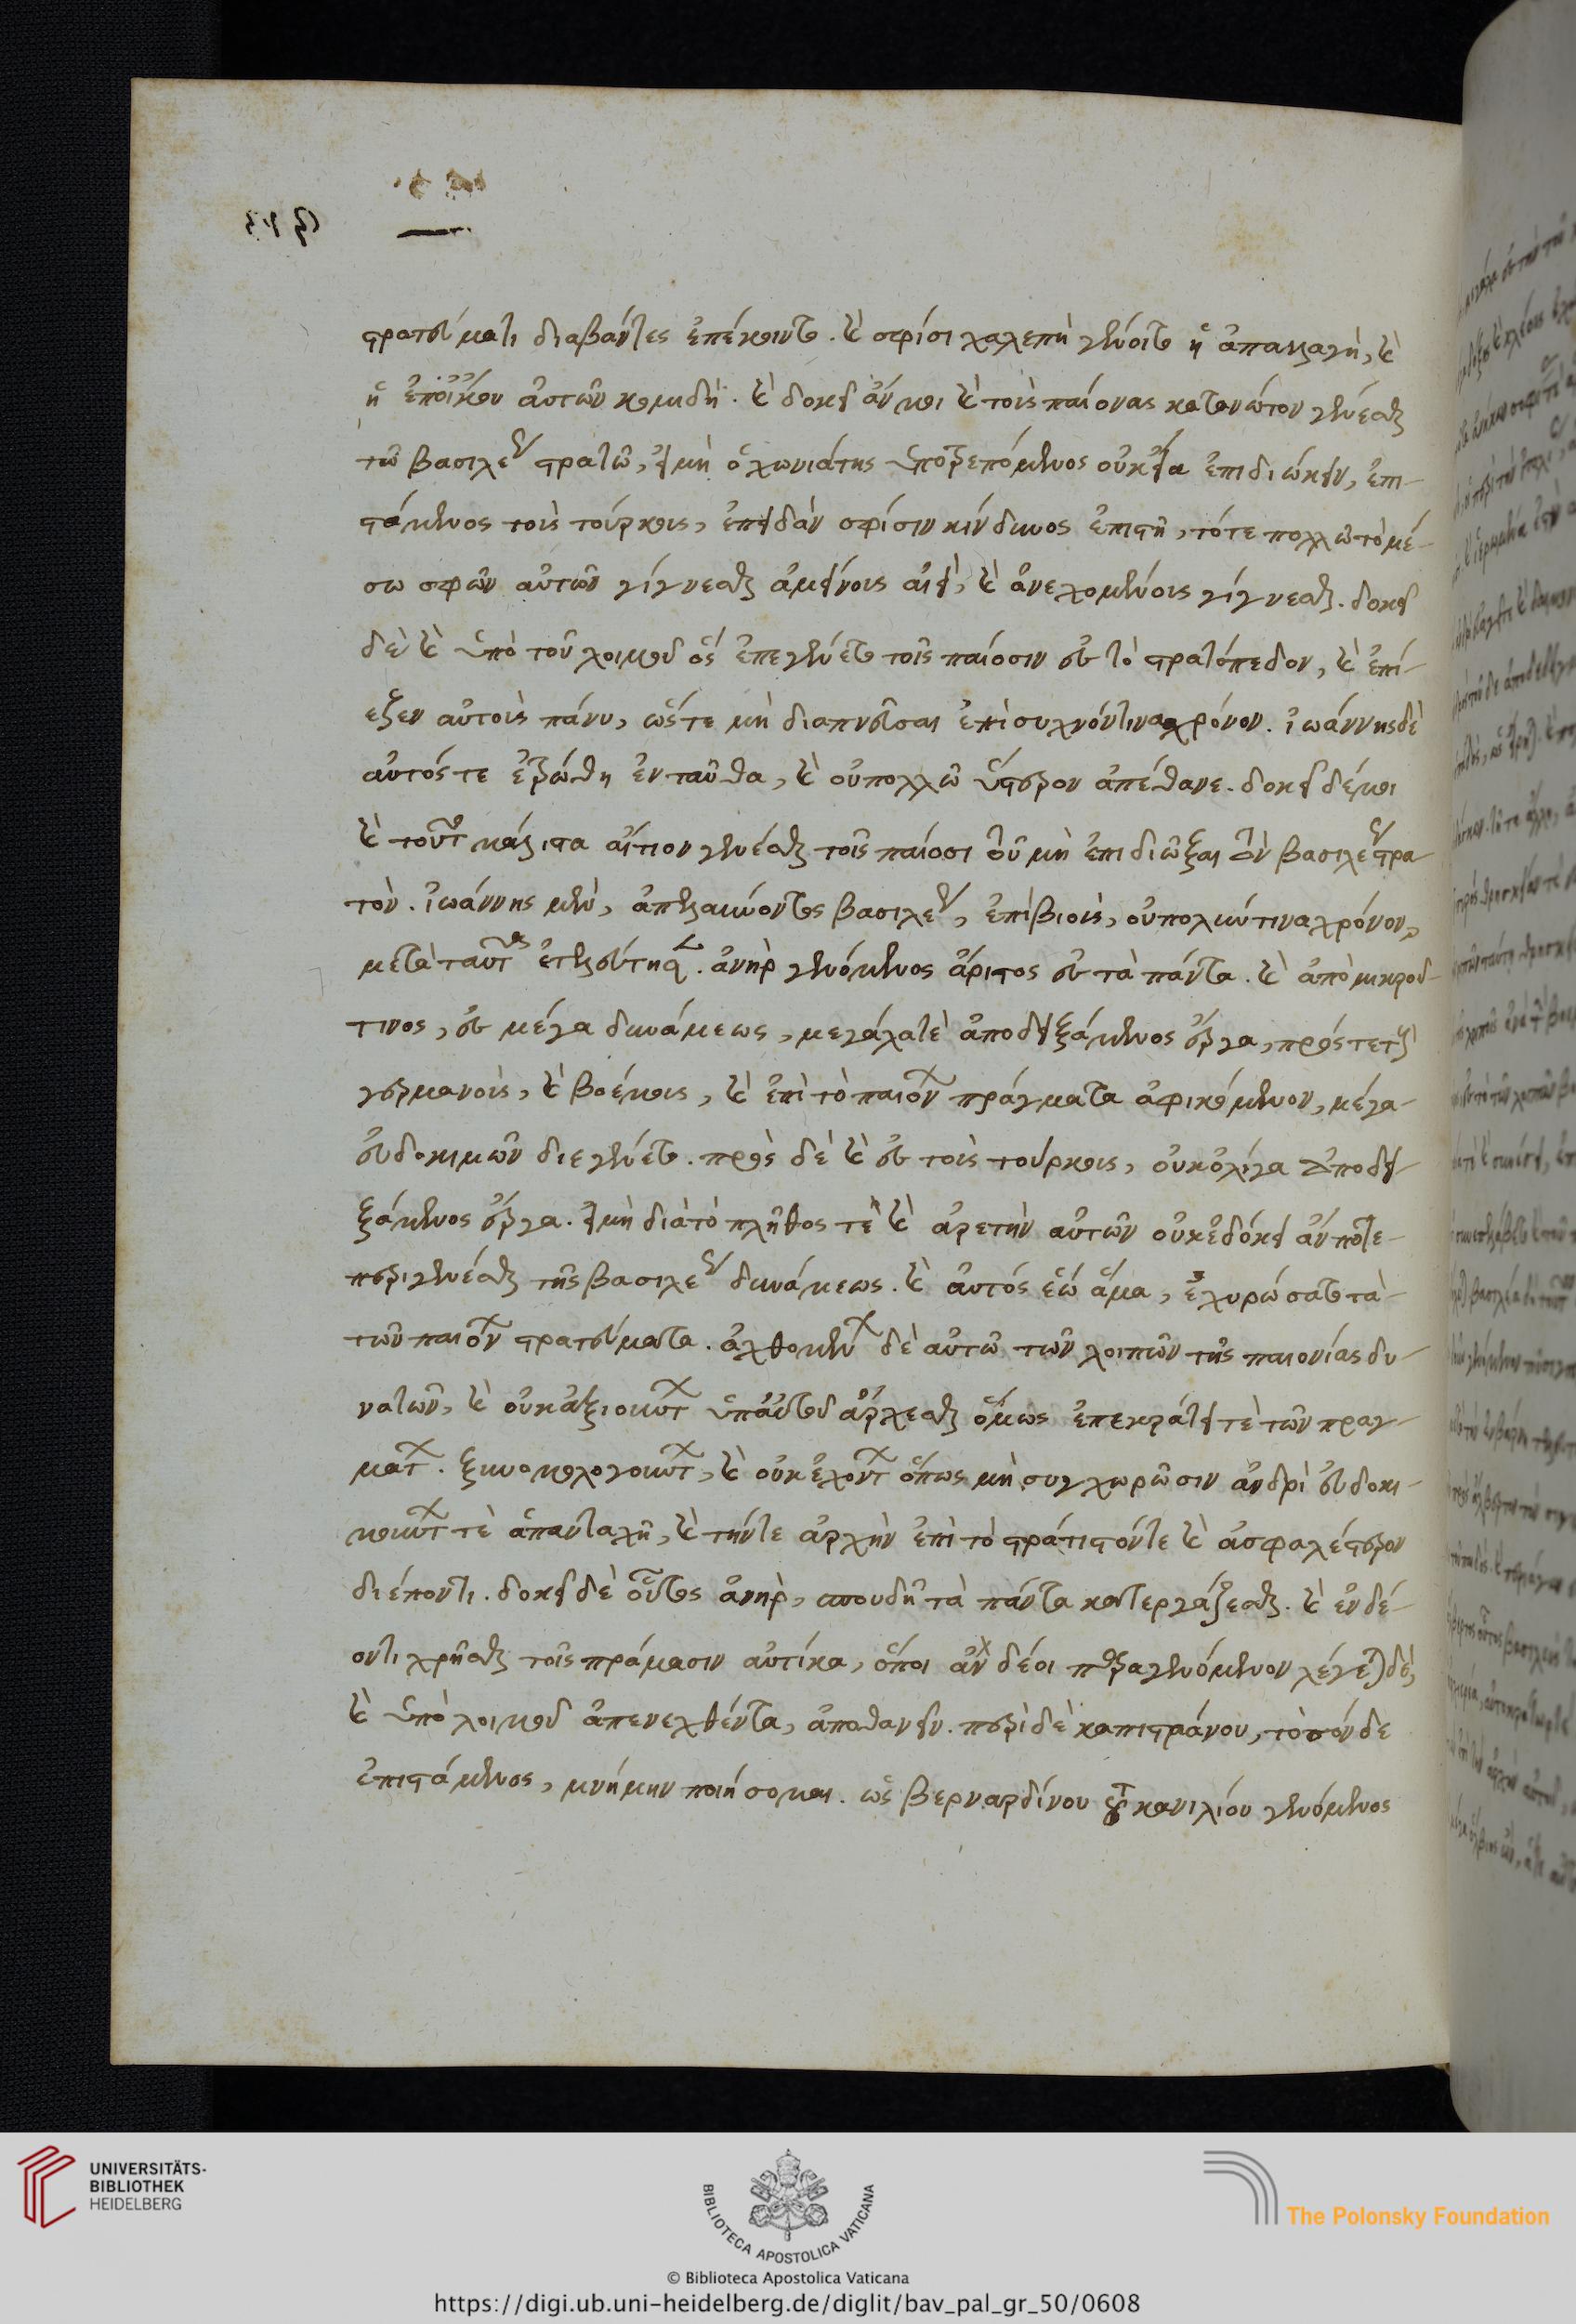 στρατεύματι διαβάντες ἐπέκοιντο. καὶ σφίσι χαλεπὴ γένοιτο ἡ ἀπαλλαγή, καὶ
ἡ ἐποίκου αὐτῶν κομιδή. καὶ δοκεῖ ἄν μοι καὶ τοὺς παίονας κατὰ νώτου γενέσθαι
τῷ βασιλέως στρατῷ, εἰ μὴ ὁ χωνιάτης ὑποτρεπόμενος οὐκ εἴα ἐπιδιώκειν, ἐπι-
στάμενος τοὺς τούρκους, ἐπειδὰν σφίσιν κίνδυνος ἐπιστῇ, τότε πολλῷ τὸ μέ-
σω σφῶν αὐτῶν γίγνεσθαι ἀμείνοις αἰεὶ, καὶ ἀνεχομένοις γίγνεσθαι. δοκεῖ
δὲ καὶ ὑπὸ τοῦ λοιμοῦ ὃς ἐπεγένετο τοῖς παίοσιν ἐς τὸ στρατόπεδον, καὶ ἐπί-
εζεν αὐτοὺς πάνυ, ὥστε μὴ διαπνεῦσαι ἐπὶ συχνόν τινα χρόνον. ἰωάννης δὲ
αὐτός τε ἐτρώθη ἐνταῦθα, καὶ οὐ πολλῷ ὕστερον ἀπέθανε. δοκεῖ δέ μοι
καὶ τοῦτο μάλιστα αἴτιον γενέσθαι τοῖς παίοσι τοῦ μὴ ἐπιδιῶξαι τὸν βασιλέως στρα-
τόν. ἰωάννης μὲν, ἀπελαύνοντος βασιλέως, ἐπιβιοὺς, οὐ πολύν τινα χρόνον,
μετὰ ταῦτα ἐτελεύτησεν. ἀνὴρ γενόμενος ἄριστος ἐς τὰ πάντα. καὶ ἀπὸ μικροῦ
τινος, ἐς μέγα δυνάμεως, μεγάλα τὲ ἀποδειξάμενος ἔργα, πρός τε τοὺς
γερμανοὺς, καὶ βοέμους, καὶ ἐπὶ τὸ παιόνων πράγματα ἀφικόμενον, μέγα
εὐδοκιμῶν διεγένετο. πρὸς δὲ καὶ ἐς τοὺς τούρκους, οὐκ ὀλίγα ἀποδει-
ξάμενος ἔργα. εἰ μὴ διὰ τὸ πλῆθος τὲ καὶ ἀρετὴν αὐτῶν οὐκ ἐδόκει ἄν ποτε
περιγενέσθαι τῆς βασιλέως δυνάμεως. καὶ αὐτός ἕῳ ἅμα, ἐχυρώσατο τὰ
τῶν παιόνων στρατεύματα. ἀχθομένων δὲ αὐτῷ τῶν λοιπῶν τῆς παιονίας δυ-
νατῶν, καὶ οὐκ ἀξιούντων ὑπ' αὐτοῦ ἄρχεσθαι ὅμως ἐπεκράτει τὲ τῶν πραγ-
μάτων. ξυνομολογούντων, καὶ οὐκ ἐχόντων ὅπως μὴ συγχωρῶσιν ἀνδρὶ εὐδοκι-
μοῦντι τὲ ἁπανταχῆ, καὶ τήν τε ἀρχὴν ἐπὶ τὸ κράτιστόν τε καὶ ἀσφαλέστερον
διέποντι. δοκεῖ δὲ οὗτος ἀνὴρ, σπουδῇ τὰ πάντα κατεργάζεσθαι. καὶ ἐν δέ-
οντι χρῆσθαι τοῖς πράμασιν αὐτίκα, ὅποι ἂν δέοι παραγενόμενον λέγεται δὲ,
καὶ ὑπὸ λοιμοῦ ἀπενεχθέντα, ἀποθανεῖν. περὶ δὲ καπιστράνου, τὸ σόνδε
ἐπιστάμενος, μνήμην ποιήσομαι. ὡς βερναρδίνου τοῦ κανιλίου γενόμενος
UNIVERSITÄTS-
BIBLIOTHEK
HEIDELBERG
BIBLIOTECA APOSTOLICA VATICANA
The Polonsky Foundation
© Biblioteca Apostolica Vaticana
https://digi.ub.uni-heidelberg.de/diglit/bav_pal_gr_50/0608